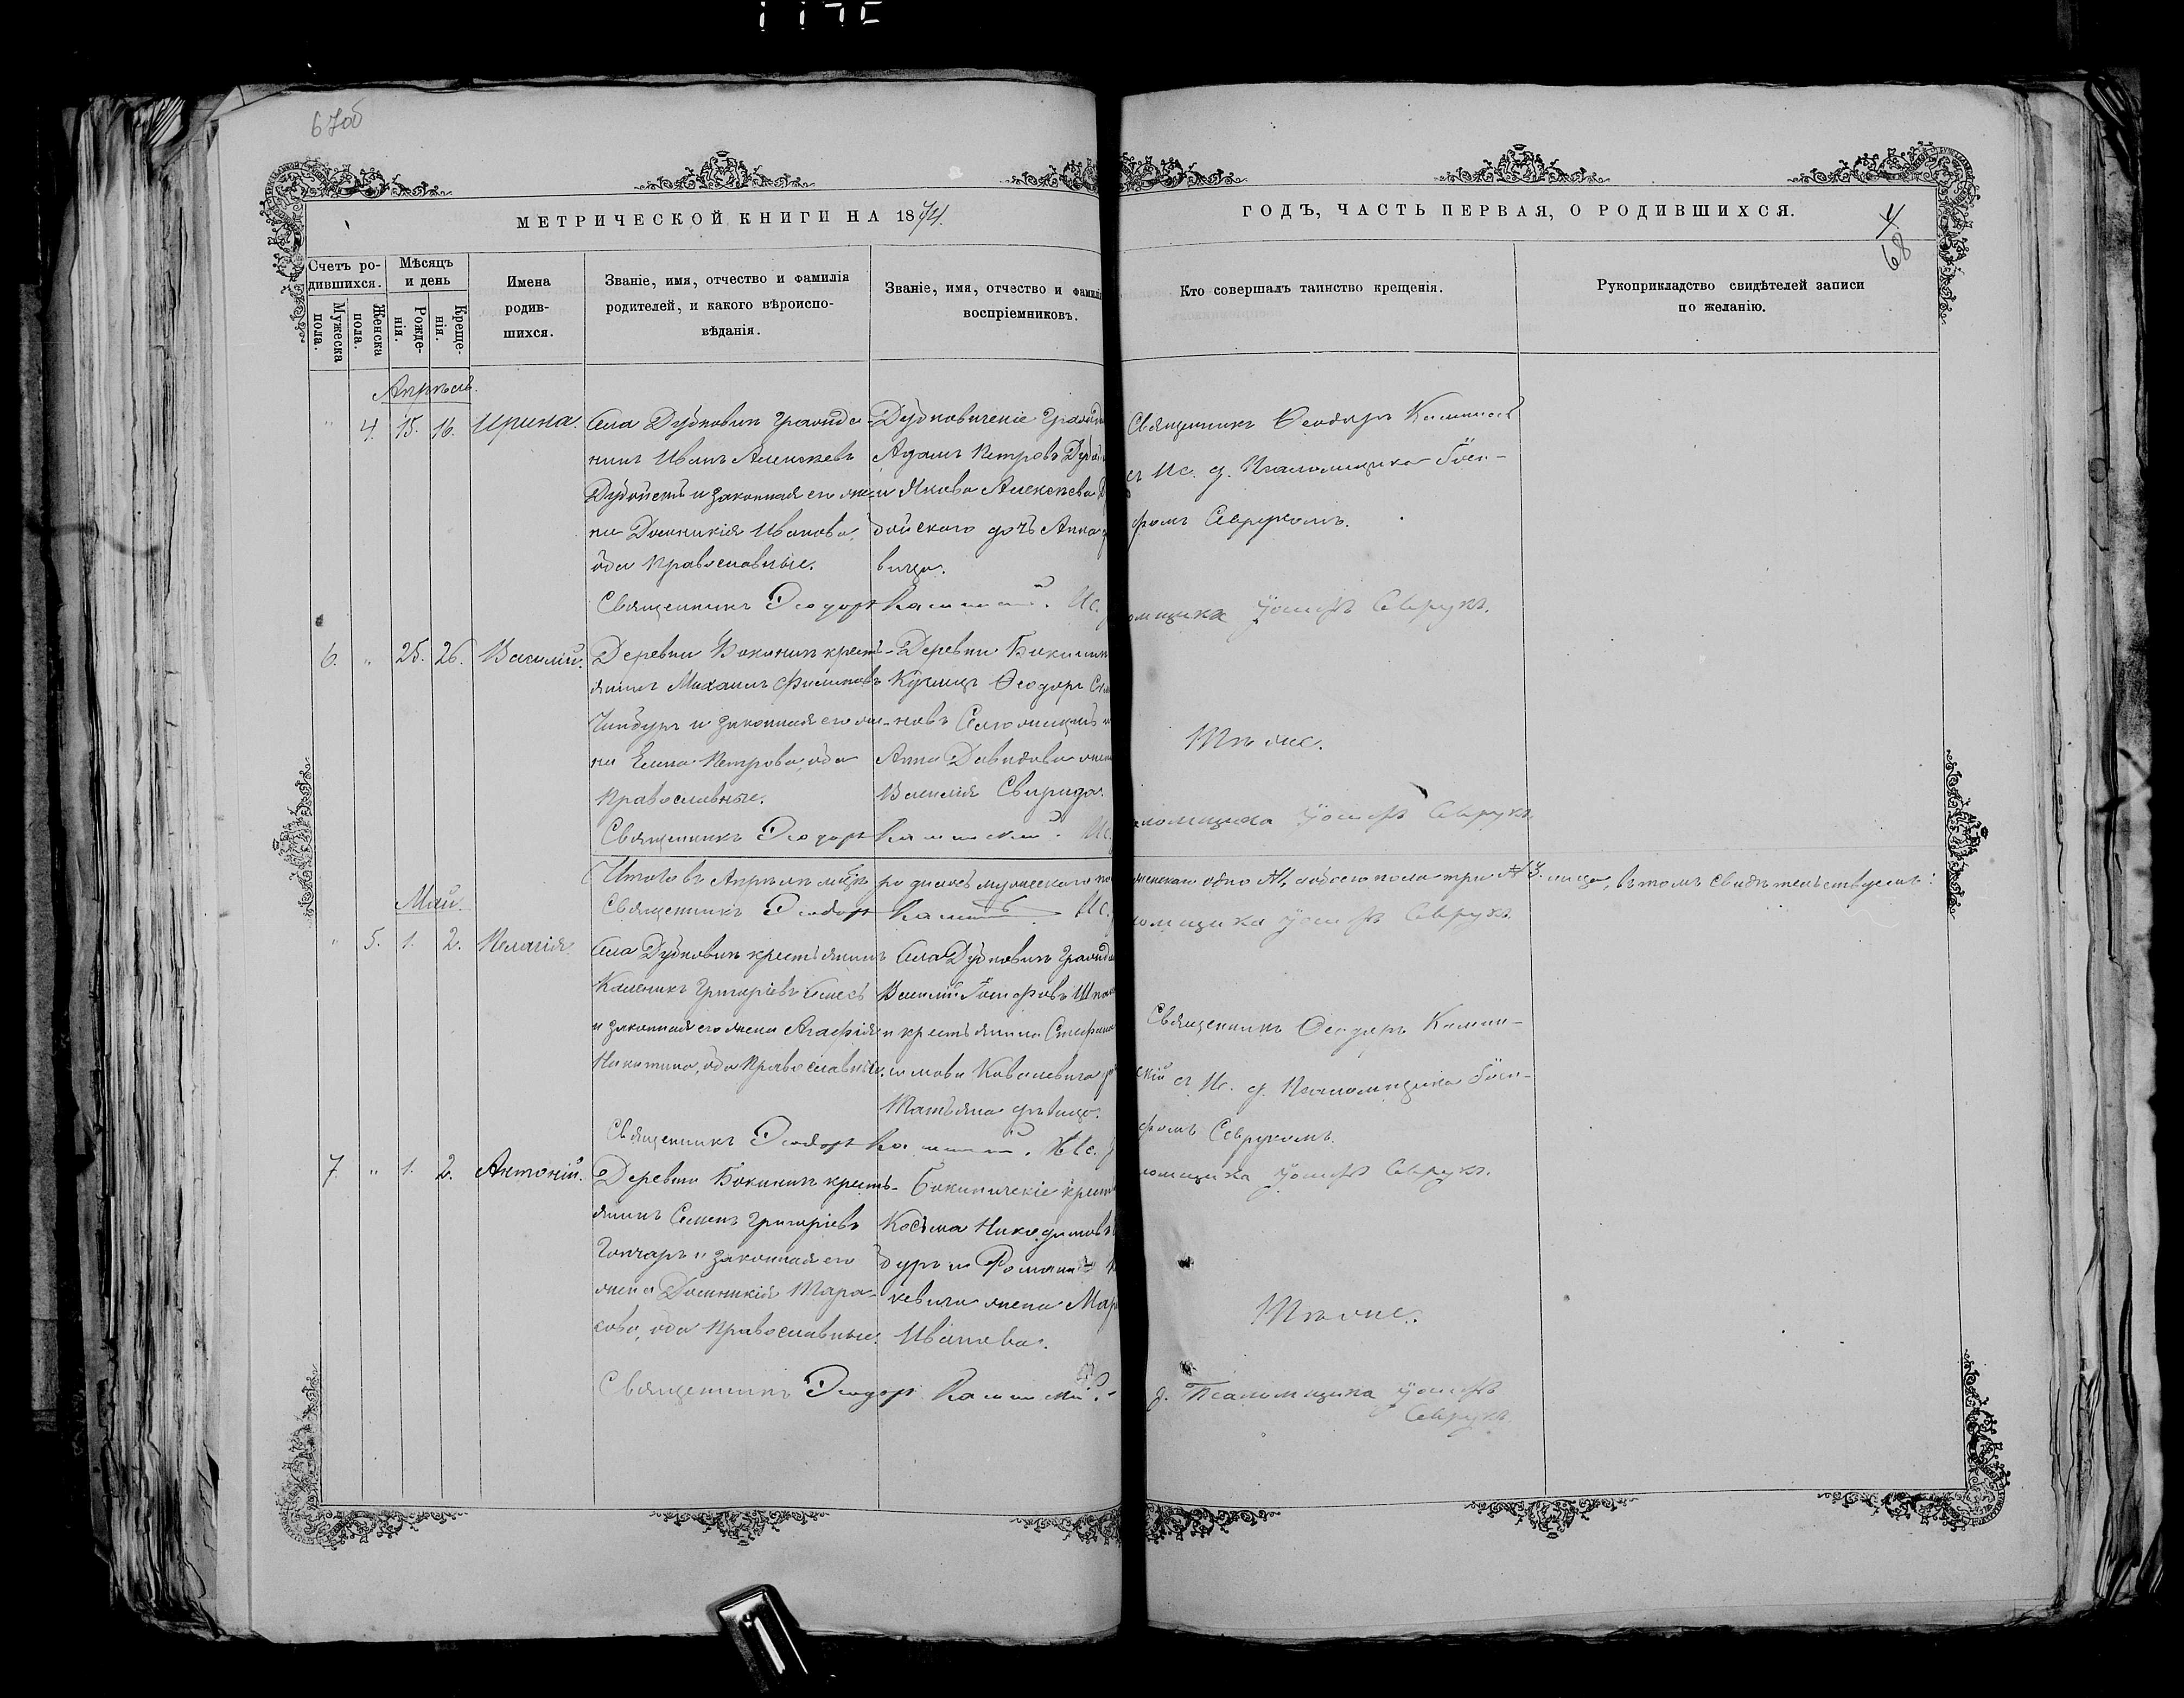 67об
МЕТРИЧЕСКОЙ КНИГИ НА 1874.
ГОДЪ, ЧАСТЬ ПЕРВАЯ, О РОДИВШИХСЯ.
68
Счетъ ро-
дившихся.
Мужеска
пола.
Женска
пола.
Мѣсяцъ
и день
Рожде-
нія.
Креще-
нія.
Имена
родив-
шихся.
Званіе, имя, отчество и фамилія
родителей, и какого вѣроиспо-
вѣданія.
Званіе, имя, отчество и фамилі
воспріемниковъ.
Кто совершалъ таинство крещенія.
Рукоприкладство свидѣтелей записи
по желанію.
Апрѣль.
" 4. 15. 16. Ирина.
Села Дубновичъ гражда-
нинъ Иванъ Алексѣевъ
и законная его же-
на Домникія Иванова,
оба Православные.
Дубновическіе
Адамъ Петровъ
и Якова Алексѣева
дойского дочь Анна
вица.
Священникъ Ѳеодоръ
съ Ис. д. Псаломщика Іоси-
фомъ Севрукомъ.
Священникъ Ѳеодоръ Каминскій. Ис.
омщика Іосифъ Севрукъ.
6. " 25. 26. Василій.
Деревни Бокиничъ кресть-
янинъ Михаилъ Филиповъ
и законная его же-
на Елена Петрова, оба
Православные.
Деревни
Ѳеодоръ
новъ
Анна Давидова
Василія Свирида.
Тѣ же.
Священникъ Ѳеодоръ Каминскій. Ис.
ломщика Іосифъ Севрукъ.
Итого въ Апрѣлѣ мѣсяцѣ мужескаго по
женскаго одно №1, а обоего пола три №3. лица, въ томъ свидѣтельствуемъ:
Священникъ Ѳеодоръ Ис.
ломщика Іосифъ Севрукъ
Май.
" 5. 1. 2. Пелагія.
Села Дубновичъ крестьянинъ
Каленикъ Григоріевъ
и законная его жена Агафія
Никитина, оба Православные.
Села Дубновичъ
Василій Іосифовъ
и крестьянина
Ковалевича
Татьяна дѣвица.
Священникъ Ѳеодоръ Камин-
скій съ Ис. д. Псаломщика Іоси-
фомъ Севрукомъ.
Священникъ Ѳеодоръ Каминскій. Ис.
ломщика Іосифъ Севрукъ.
7. " 1. 2. Антоній.
Деревни Бокиничъ кресть-
янинъ Семенъ Григоріевъ
Гончаръ и законная его
жена Домникія Тара-
сова, оба Православные.
Бокиническіе
Косьма Никодимовъ
дуръ и Романа
кевича жена
Иванова.
Тѣ же.
Священникъ Ѳеодоръ Каминскій.
д. Псаломщика Іосифъ
Севрукъ.